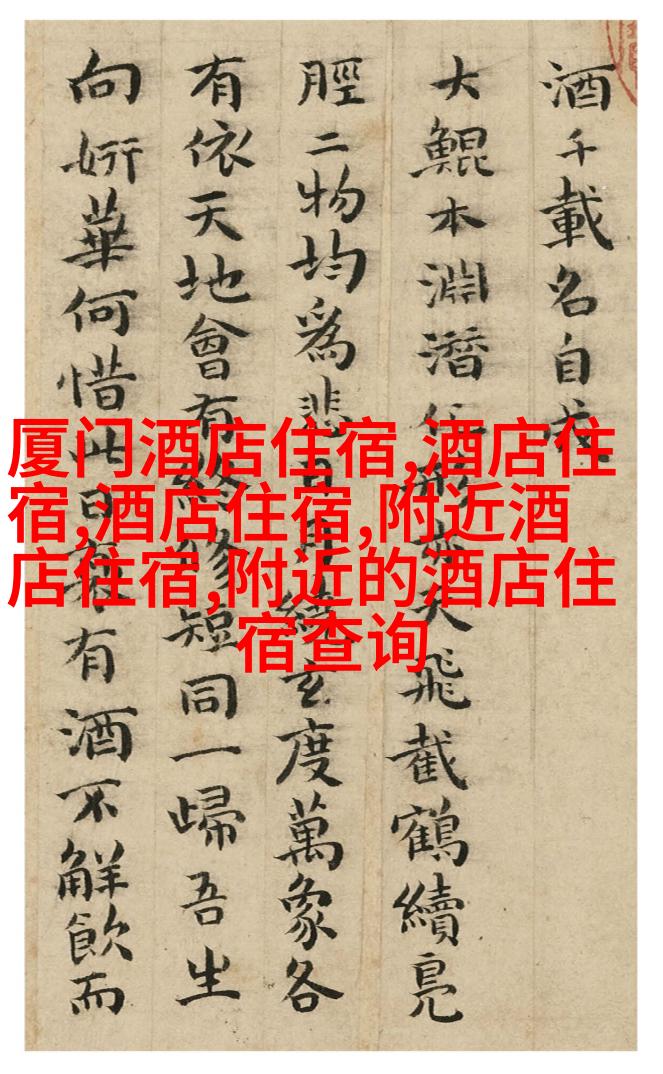 酒千載名自
大鯤本淵潛天飛截鶴續鳧
脛二物均爲悲日月繞玄度萬象各
有依天地會有終修短同一歸吾生
向妍華何惜此日衰有酒不解飲而
厦门酒店住宿,酒店住
宿,酒店住宿,附近酒
店住宿,附近的酒店住
宿查询